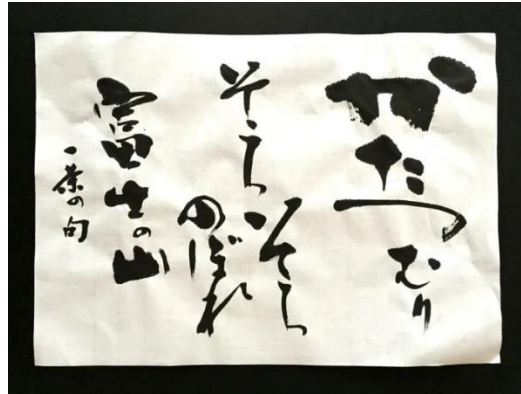 かたつむり
そろ
そろ
のぼれ
富士の山
一茶の句